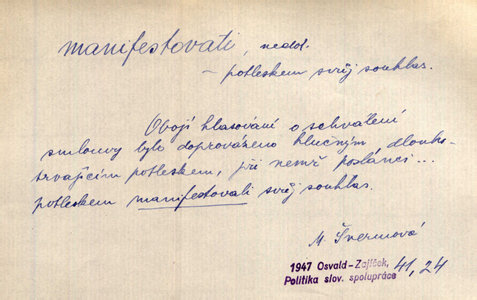 manifestovati, nedok.
– potleskem svůj souhlas.
Obojí hlasování o schválení
smlouvy bylo doprovázeno hlučným, dlouho-
trvajícím potleskem, při němž poslanci...
potleskem manifestovali svůj souhlas.
M. Švermová
1947 Osvald-Zajíček, 41, 24
Politika slov. spolupráce